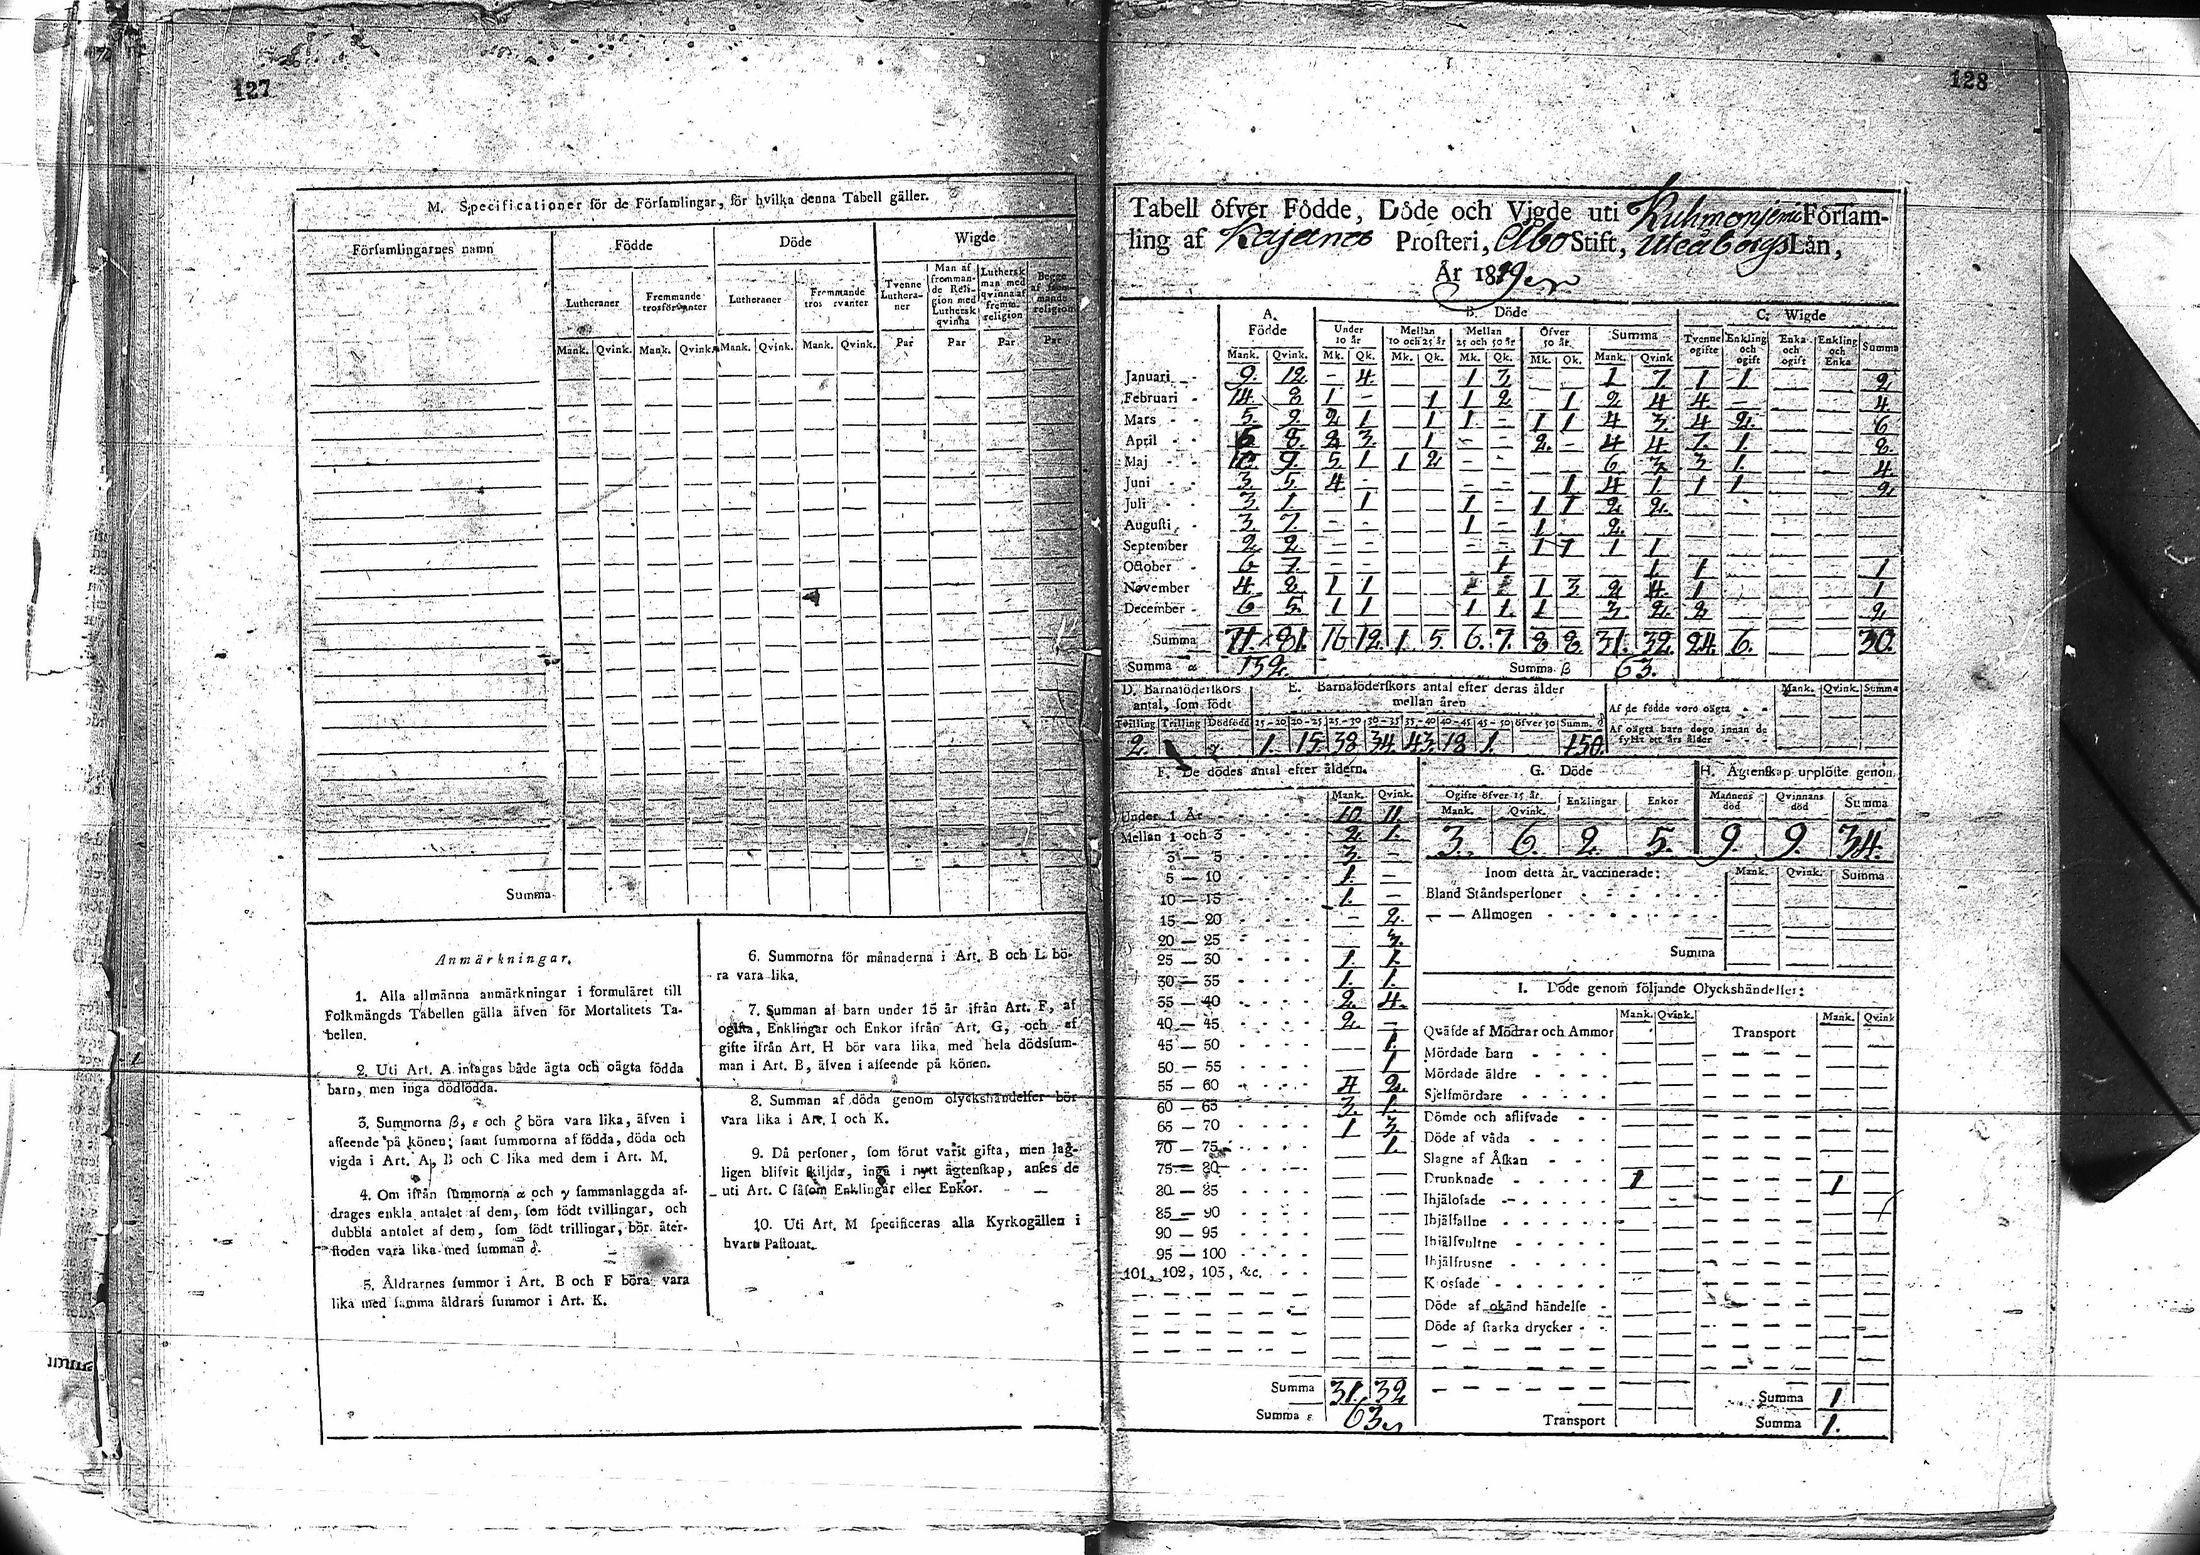 127
M. Specificationer för de Församlingar, för hvilka denna Tabell gäller.
Församlingarnes namn
Födde
Döde
Wigde
Lutheraner
Fremmande trosförvanter
Lutheraner
Fremmande
Tvenne Lutheraner
Man af fremmande Religion med Luthersk qvinna
Luthersk man med qvinna af fremm. religion
Begge af fremmande religion
Mank. Qvink. Mank. Qvink. Mank. Qvink. Mank. Qvink. Par Par Par Par
Summa
Anmärkningar.
1. Alla allmänna anmärkningar i formuläret till
Folkmängds Tabellen gälla äfven för Mortalitets Ta-
bellen.
2. Uti Art. A intagas både ägta och oägta födda
barn, men inga dödfödda.
3. Summorna β, ε och ζ böra vara lika, äfven i
affeende på könen; samt summorna af födda, döda och
vigda i Art. A, B och C lika med dem i Art. M.
4. Om ifrån summorna α och γ sammanlaggda af-
drages enkla antalet af dem, som födt tvillingar, och
dubbla antalet af dem, som födt trillingar, bör åter-
stoden vara lika med summan δ.
5. Åldrarnes summor i Art. B och F böra vara
lika med samma åldrars summor i Art. K.
6. Summorna för månaderna i Art. B och L bö-
ra vara lika.
7. Summan af barn under 15 år ifrån Art. F, af
ogifta, Enklingar och Enkor ifrån Art. G, och af
gifte ifrån Art. H bör vara lika med hela dödssum-
man i Art. B, äfven i affeende på könen.
8. Summan af döda genom olyckshändelser bör
vara lika i Art. I och K.
9. Då personer, som förut varit gifta, men lag-
ligen blifvit skiljda, ingå i nytt ägtenskap, anses de
uti Art. C såsom Enklingar eller Enkor.
10. Uti Art. M specificeras alla Kyrkogällen i
hvart Pastorat.
128
Tabell öfver Födde, Döde och Vigde uti Kuhmoniemi Försam-
ling af Kajana Prosteri, Åbo Stift, Uleåborgs Län,
År 1819
A. Födde
B. Döde
C. Wigde
Under 10 år
Mellan 10 och 25 år
Mellan 25 och 50 år
Öfver 50 år
Summa
Tvenne ogifte
Enkling och ogift
Enka och ogift
Enkling och Enka
Summa
Mank. Qvink. Mk. Qk. Mk. Qk. Mk. Qk. Mk. Qk. Mank. Qvink
Januari 9. 12. - 4. 1 3 1 7 1 1 2
Februari 14. 8 1 - 1 1 2 1 2 4 4 - 4
Mars 5. 9. 2 1 1 1 - 1 1 4 3 4 2 6
April 6 8. 2 3. 1 - - 2. - 4 4 7. 1. 8.
Maj 10. 9. 5 1 1 2 - - 6 3 3 1. 4.
Juni 3 5 4 - - - 1 4 1 1 1 2
Juli 3 1. 1 1 - 1 1 2 2.
Augusti 3 7. - - 1 - 1 2.
September 2 2. - - 1 1 1 1
October 6 7. - - 1 1 1 1
November 4. 8 1 1 1 3 2 4. 1 1
December 6 5. 1 1 1 1. 1 3 2. 2 2
Summa 71. 81. 16 12. 1 5. 6. 7. 8 8. 31. 32. 24. 6. 30.
Summa α 152. Summa β 63.
D. Barnaföderskors antal, som födt
E. Barnaföderskors antal efter deras ålder mellan åren
Mank. Qvink. Summa
Tvilling Trilling Dödfödd 15-20 20-25 25-30 30-35 35-40 40-45 45-50 öfver 50 Summ. δ
Af de födde voro oägta
Af oägta barn dogo innan de fyllt ett års ålder
2. 1. 15. 38 34. 43. 18 1. 150.
F. De dödes antal efter åldern.
Mank. Qvink.
Under 1 År 10 11.
Mellan 1 och 3 2. 1.
3 — 5 3. -
5 — 10 1. -
10 — 15 1. -
15 — 20 - 2.
20 — 25 3.
25 — 30 1. 1.
30 — 35 1. 1.
35 — 40 2. 4.
40 — 45 2. -
45 — 50 1.
50 — 55 1
55 — 60 4 2.
60 — 65 3. 1.
65 — 70 1 3.
70 — 75 1.
75 — 80
80 — 85
85 — 90
90 — 95
95 — 100
101, 102, 103, &c.
Summa 31. 32
Summa ε 63
G. Döde
Ogifte öfver 15 år. Enklingar Enkor
Mank. Qvink.
3. 6. 2. 5.
H. Ägtenskap upplöste genom
Mannens död Qvinnans död Summa
9. 9. 34.
Inom detta år vaccinerade: Mank. Qvink. Summa
Bland Ståndspersoner
— — Allmogen
Summa
I. Döde genom följande Olyckshändelser:
Mank. Qvink. Mank. Qvink
Qväfde af Mödrar och Ammor Transport
Mördade barn
Mördade äldre
Sjelfmördare
Dömde och aflifvade
Döde af våda
Slagne af Åskan
Drunknade 1 1
Ihjälosade
Ihjälfallne
Ihjälsvultne
Ihjälfrusne
Krossade
Döde af okänd händelse
Döde af starka drycker
Summa 1
Transport Summa 1.